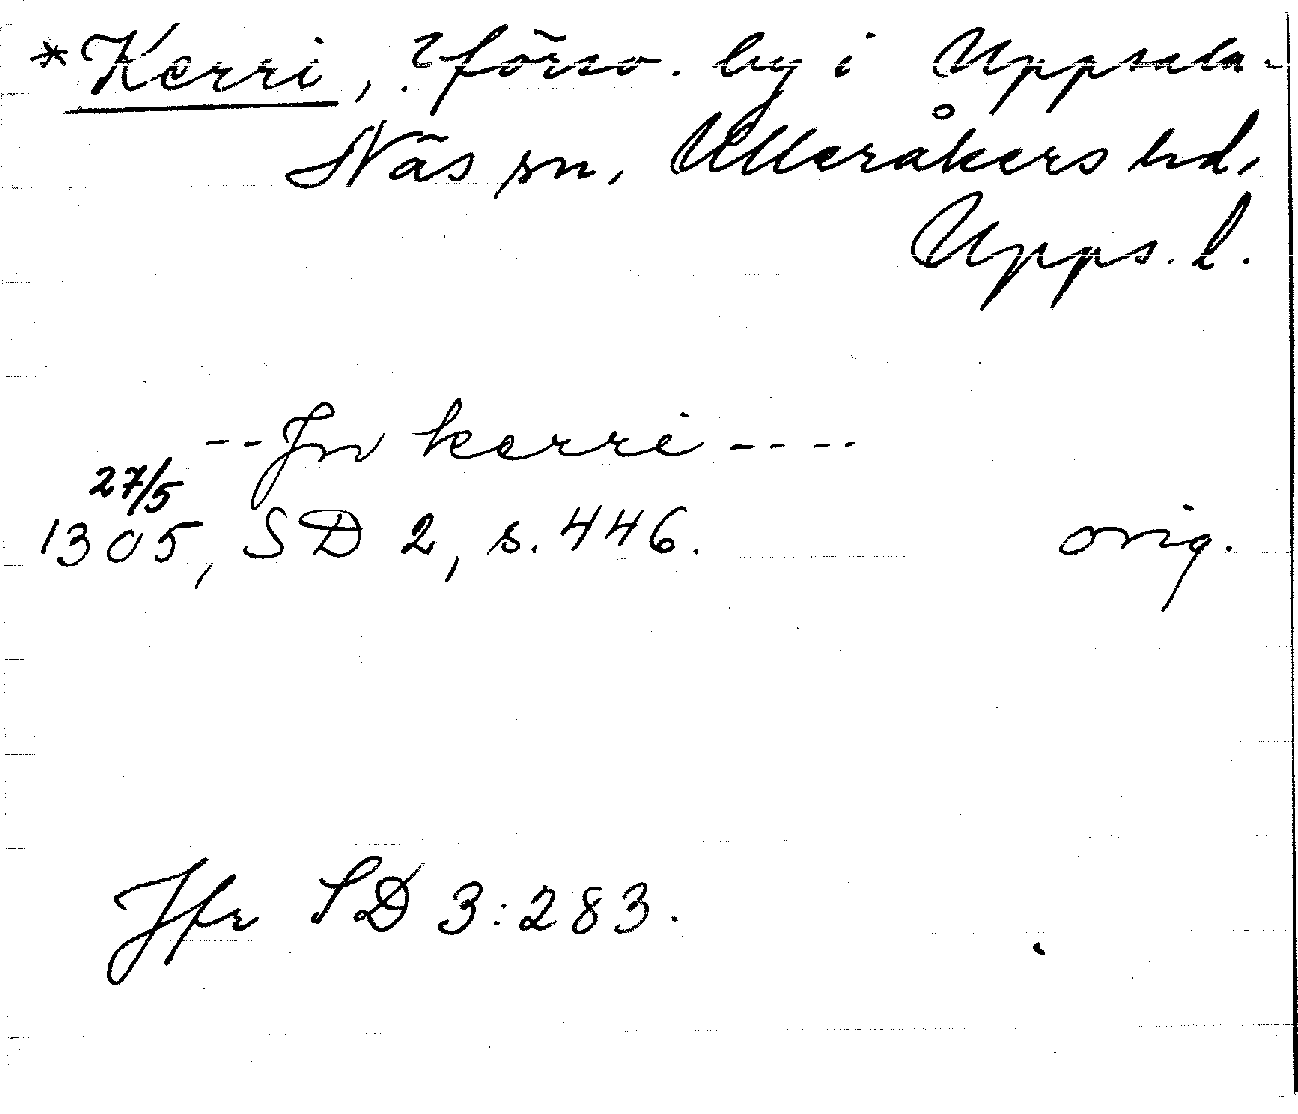 *Kerri, ?försv. by i Uppsala-
Näs sn, Ulleråkers hd,
Upps. l.
--Jn kerri----
27/5
1305, SD 2, s. 446. orig.
Jfr SD 3:283.